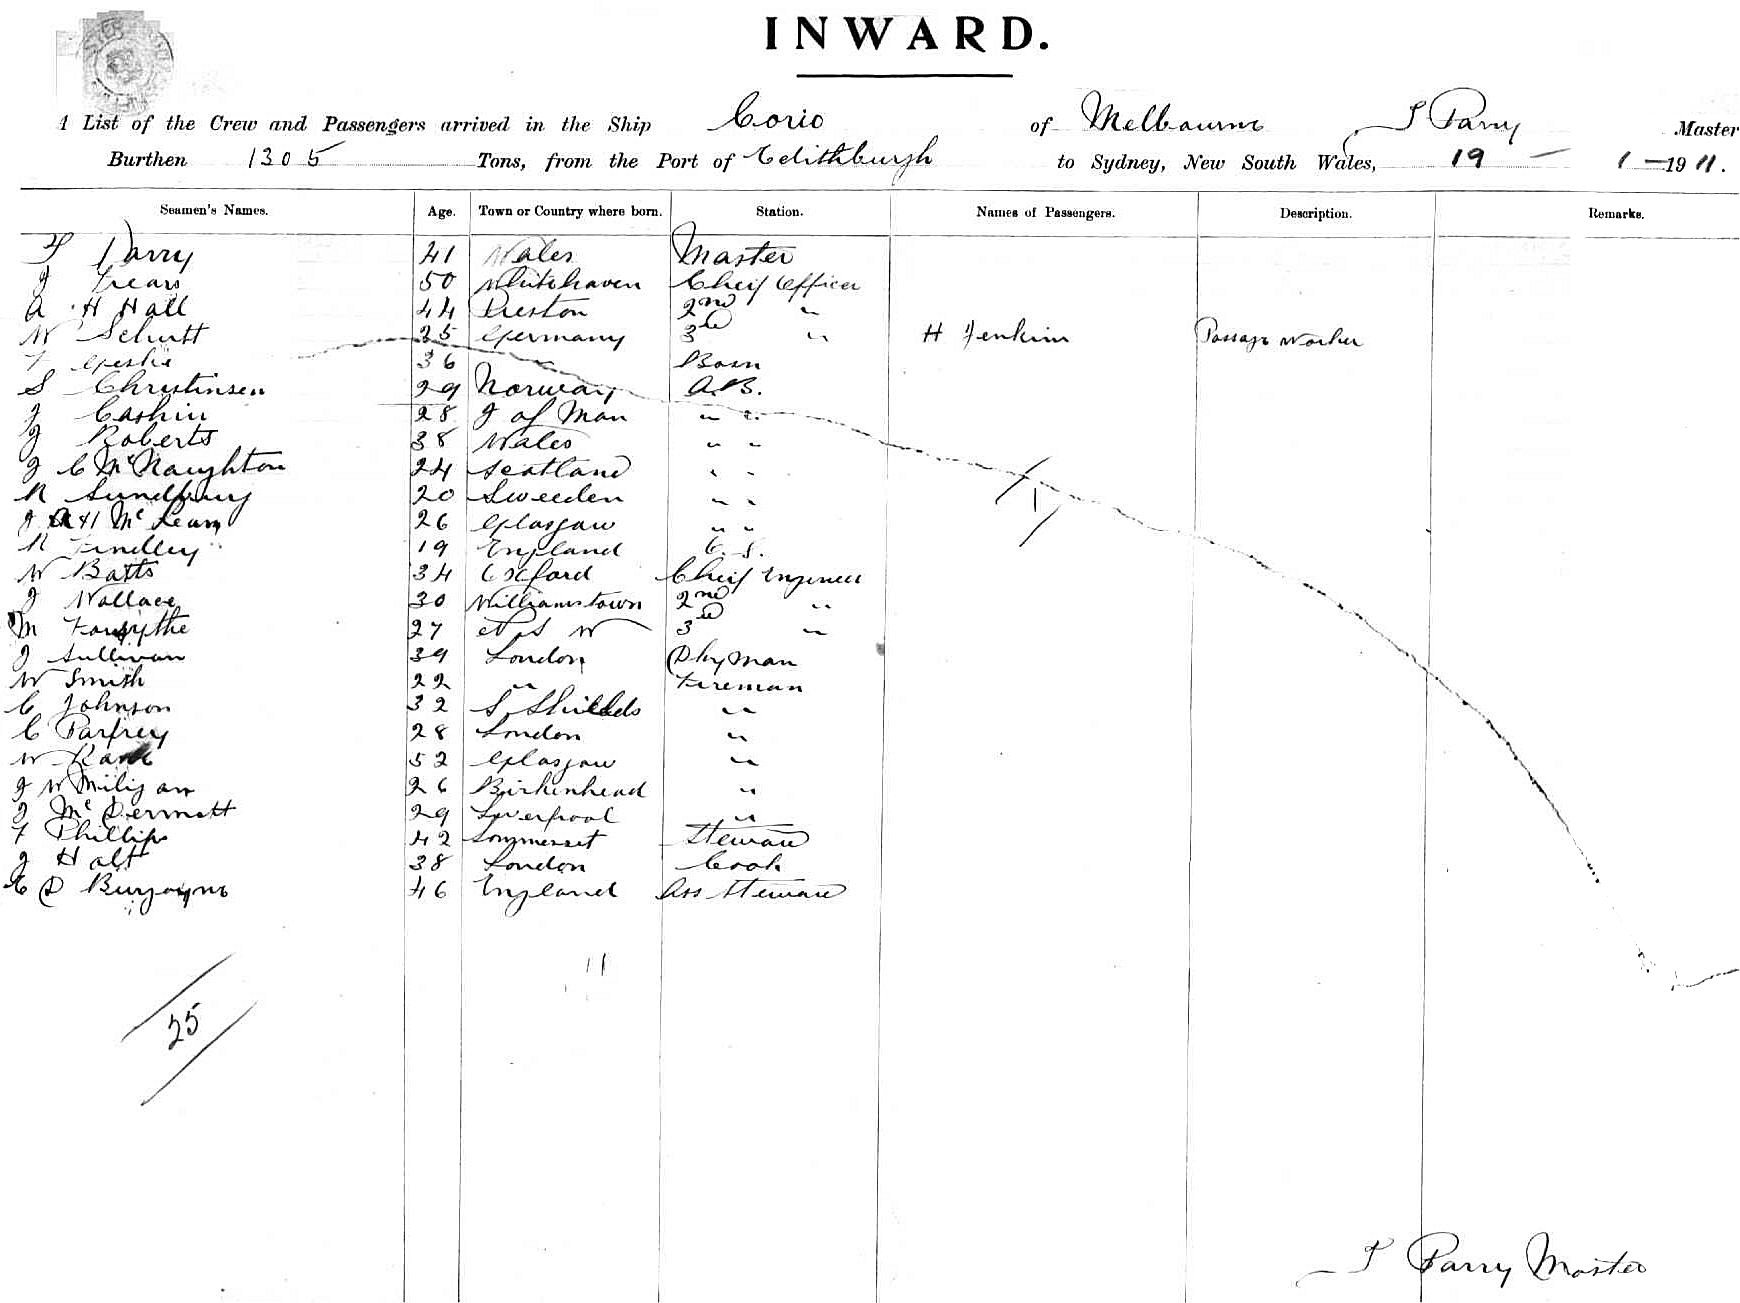 INWARD.
A List of the Crew and Passengers arrived in the Ship Corio of Melbourne T Parry Master
Burthen 1305 Tons, from the Port of Edithburgh to Sydney, New South Wales, 19 — 1 — 1911.
Seamen's Names. Age. Town or Country where born. Station. Names of Passengers. Description. Remarks.
T Parry 41 Wales Master
J 50 Whitehaven Cheif Officer
A H Hall 44 Preston 2nd "
W Schutt 35 Germany 3rd " H Jenkins Passage Worker
36 Bosn
S Christinsen 29 Norway A.B.
J Cashin 28 I of Man " "
J Roberts 38 Wales " "
J C McNaughton 24 Scotland " "
N 20 Sweeden " "
J A H McLean 26 Glasgow " "
N Findley 19 England O.S.
W Batts 34 Oxford Cheif Engineer
J Wallace 30 Williamstown 2nd "
M Forsythe 27 N S W 3rd "
J Sullivan 39 London Dkyman
W Smith 22 " Fireman
C Johnson 32 S Shields "
C Parfrey 28 London "
W 52 Glasgow "
J W Miligan 26 Birkenhead "
J McDermott 29 Liverpool "
F Phillips 42 Sommerset Steward
J Holt 38 London Cook
C D Burgoyne 46 England Ass Steward
1
25
T Parry Master